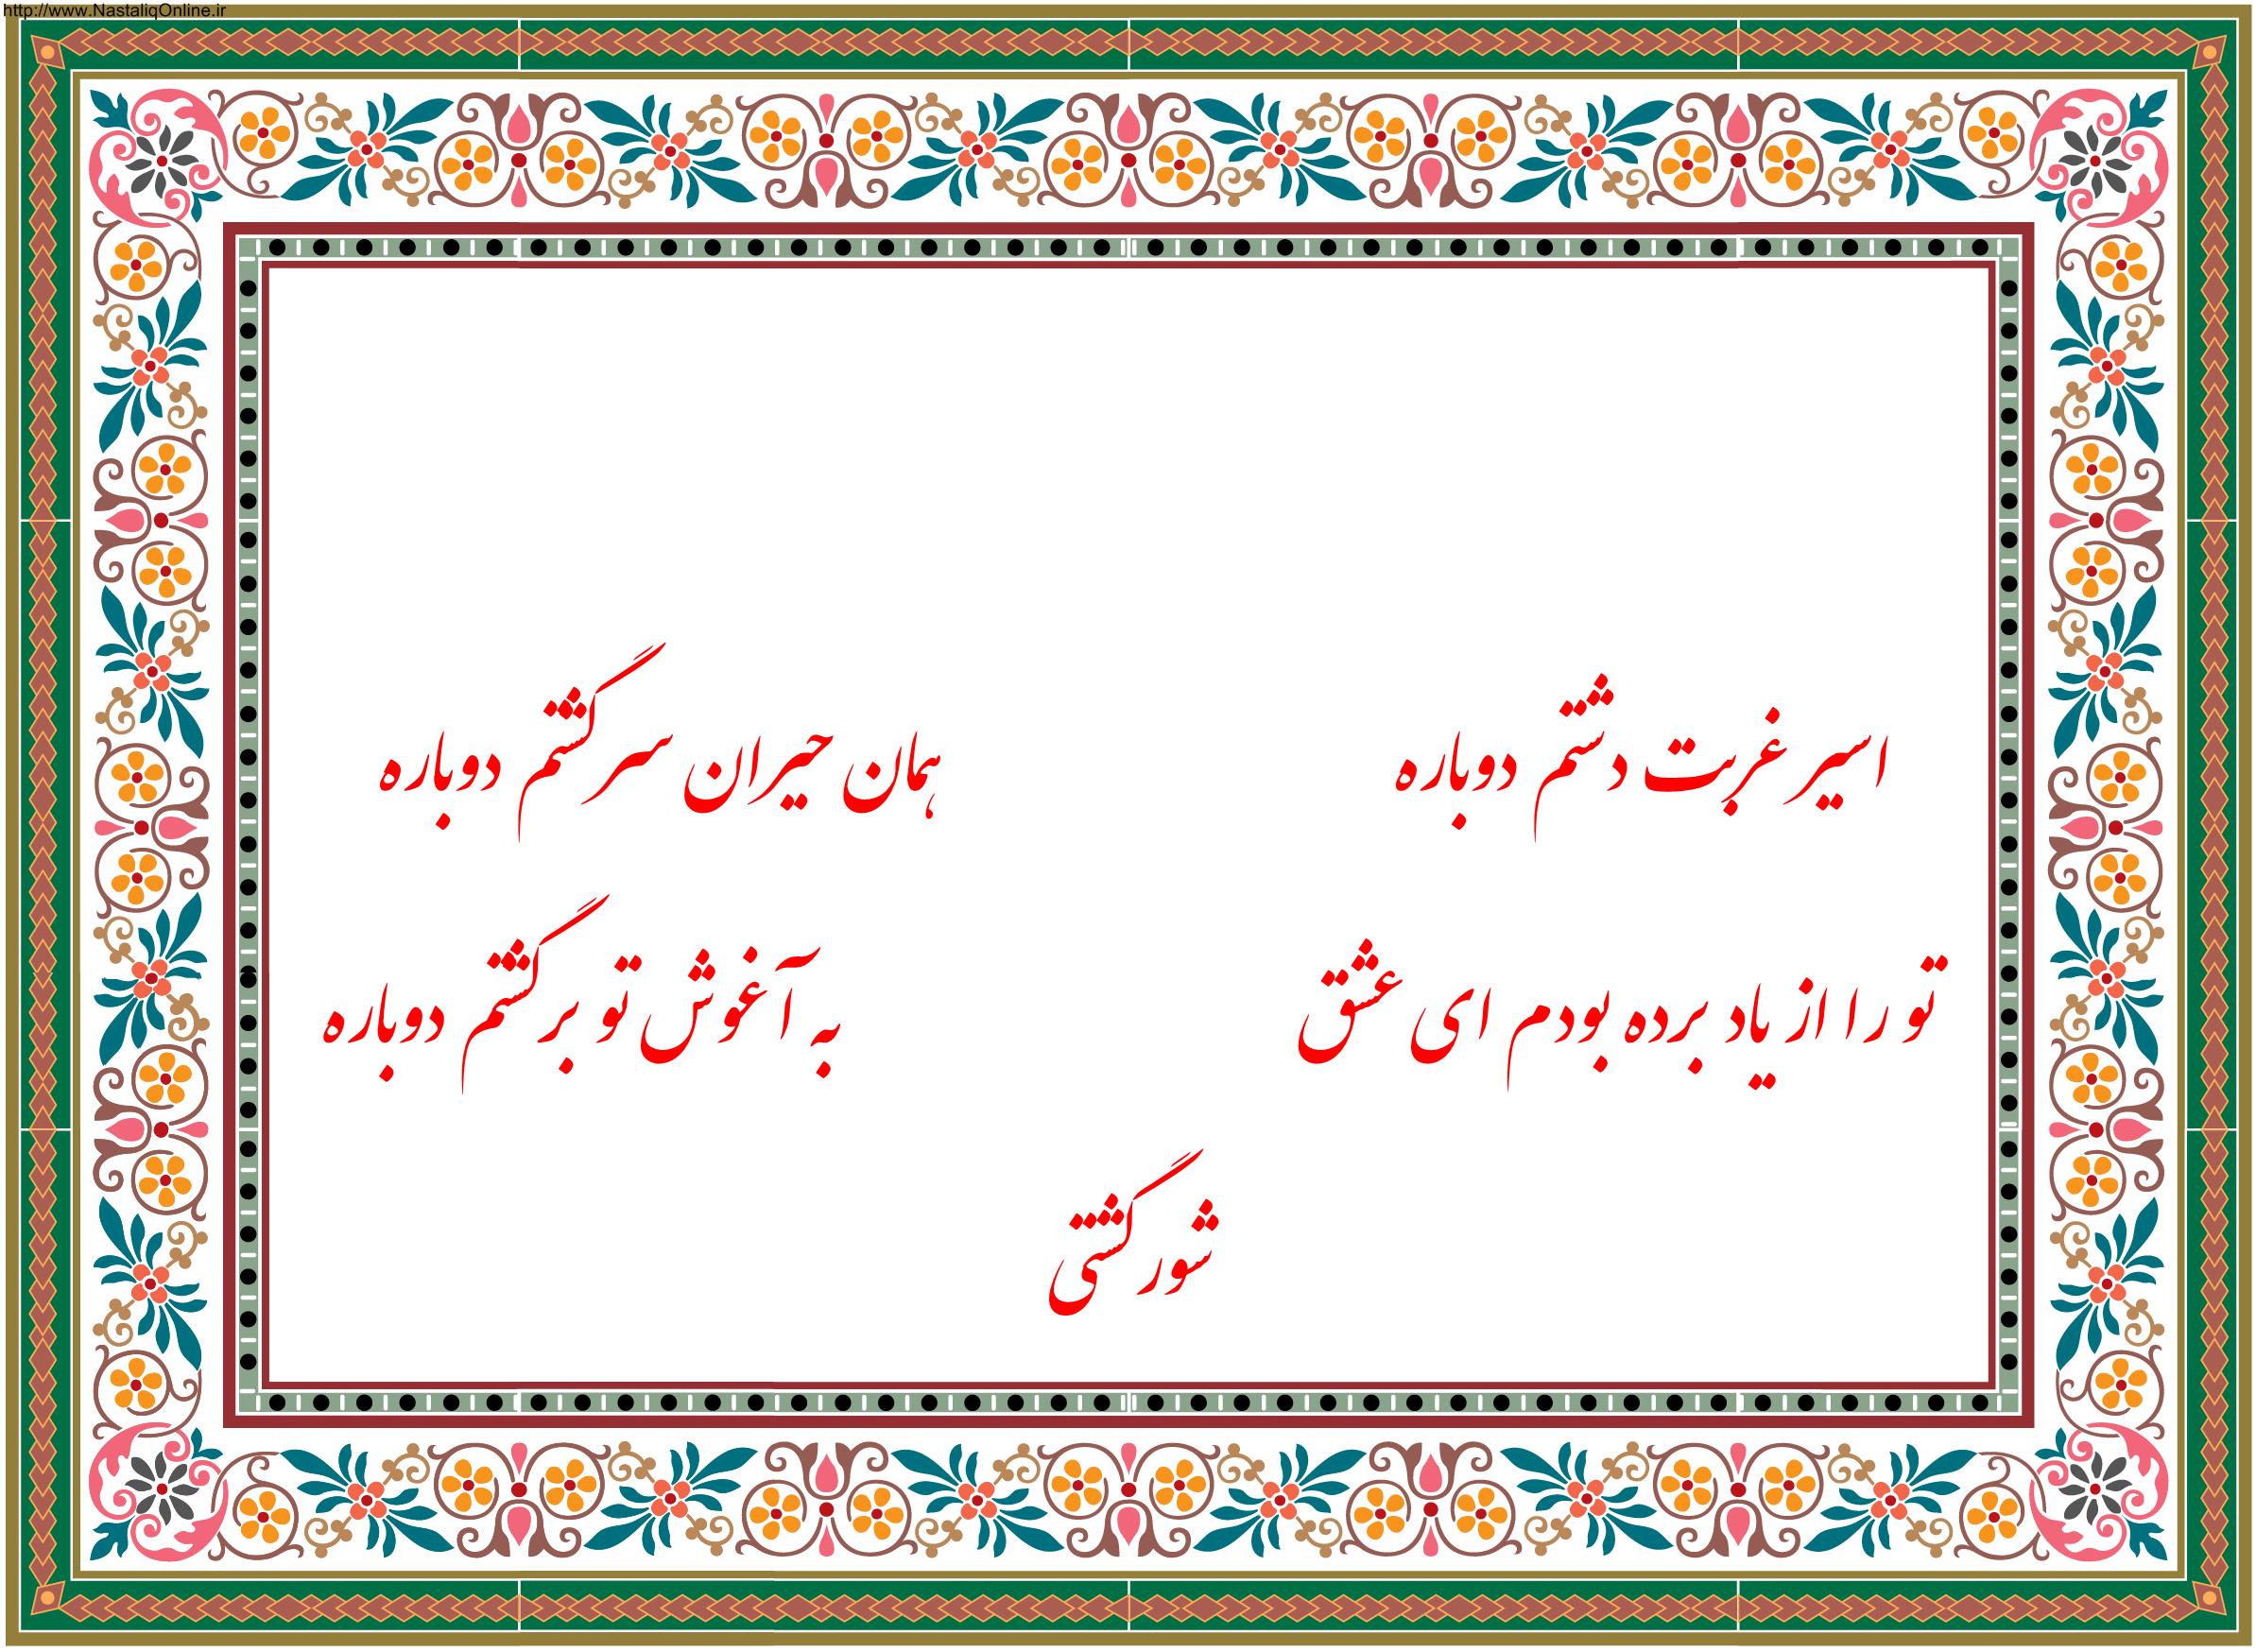 http://www.NastaliqOnline.ir
اسیر غربت دشتم دوباره
همان حیران سرگشتم دوباره
تو را از یاد برده بودم ای عشق
به آغوش تو برگشتم دوباره
شورگشتی